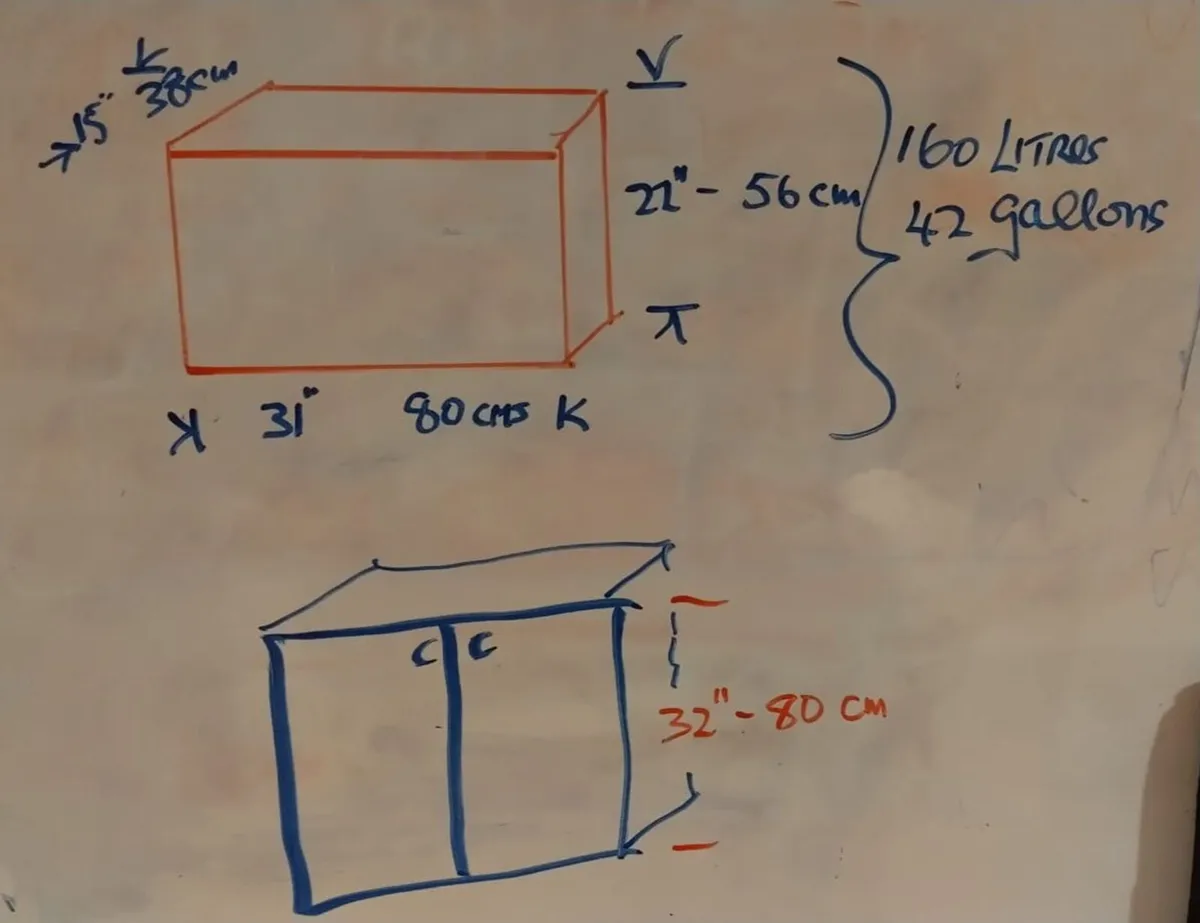 15" 38cm
22" - 56 cm
160 LITRES
42 gallons
31" 80 cms
32" - 80 cm